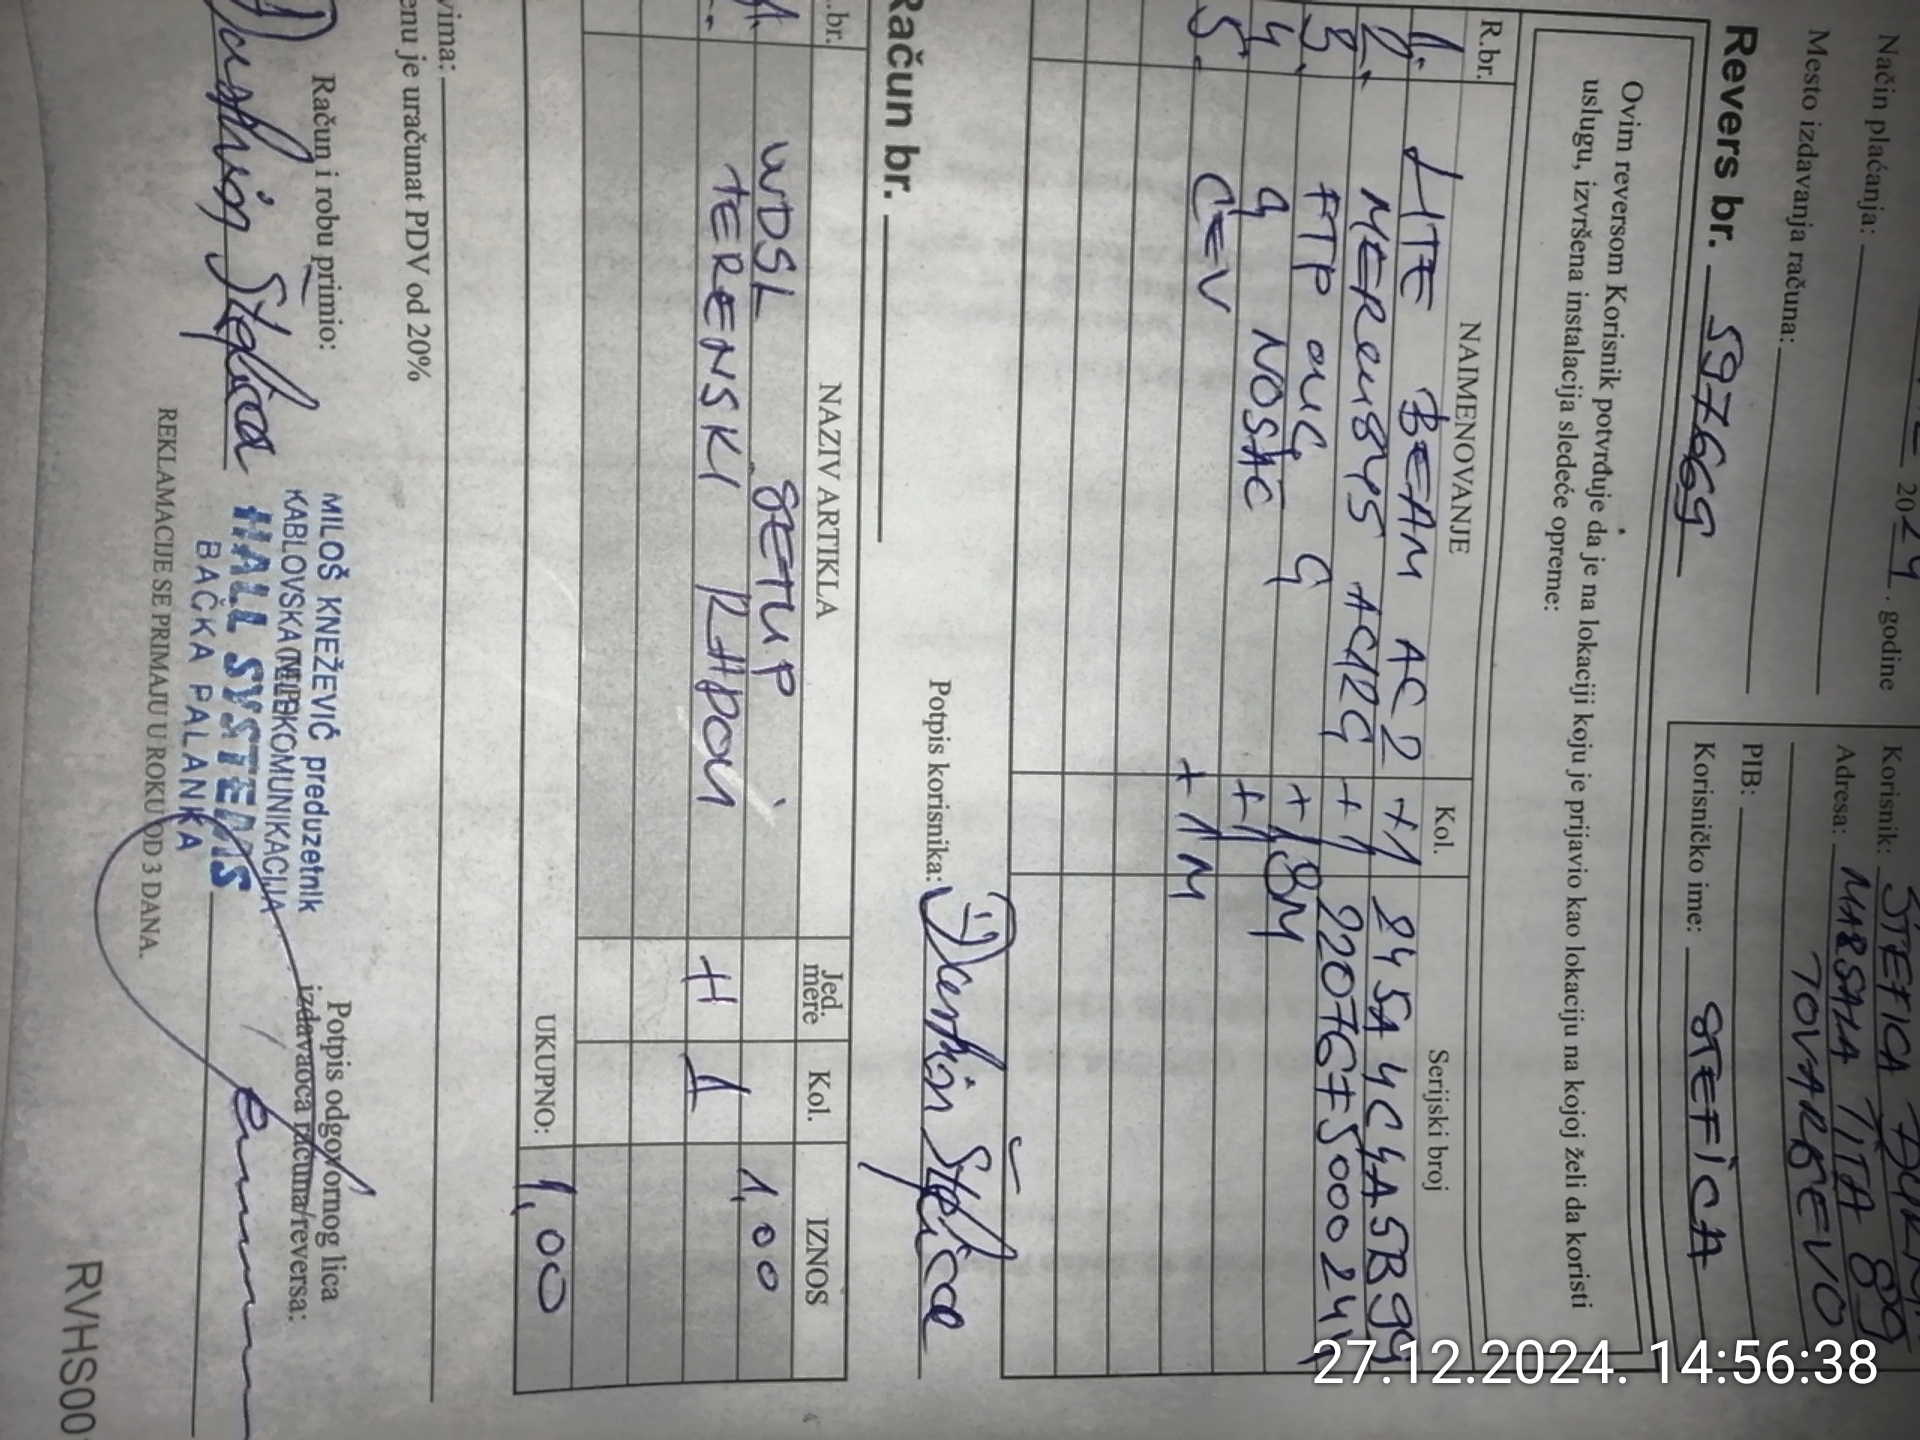 2024. godine
Način plaćanja:
Mesto izdavanja računa:
Korisnik: ŠTEFICA
Adresa: MARŠALA TITA 89
TOVARIŠEVO
PIB:
Korisničko ime: STEFICA
Revers br. 597669
Ovim reversom Korisnik potvrđuje da je na lokaciji koju je prijavio kao lokaciju na kojoj želi da koristi
uslugu, izvršena instalacija sledeće opreme:
R.br. NAIMENOVANJE Kol. Serijski broj
1. LITE BEAM AC 2 +1 245A4C4A5B99
2. MERCUSYS AC12G +1 2207GF500024
3. FTP +18M
4. NOSAČ +1
5. CEV +1M
Potpis korisnika: Štefica
Račun br.
.br. NAZIV ARTIKLA Jed. mere Kol. IZNOS
WDSL SETUP 1,00
TERENSKI RADOVI H 1
UKUPNO: 1,00
vima:
enu je uračunat PDV od 20%
Račun i robu primio:
Štefica
MILOŠ KNEŽEVIĆ preduzetnik
KABLOVSKA TELEKOMUNIKACIJA
HALL SYSTEMS
BAČKA PALANKA
(M.P.)
Potpis odgovornog lica
izdavaoca računa/reversa:
REKLAMACIJE SE PRIMAJU U ROKU OD 3 DANA.
RVHS00
27.12.2024. 14:56:38